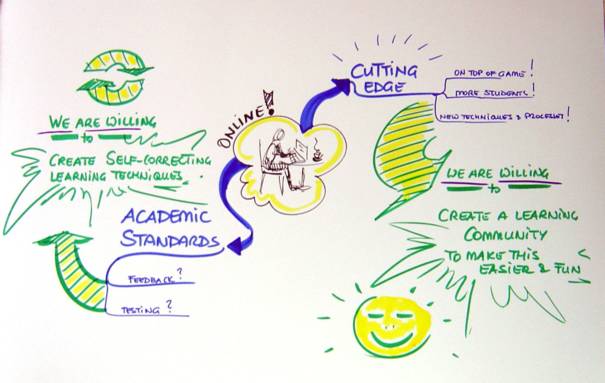 ONLINE!
CUTTING
EDGE
ON TOP OF GAME!
MORE STUDENTS!
NEW TECHNIQUES & PROCESSES!
WE ARE WILLING
to
CREATE A LEARNING
COMMUNITY
TO MAKE THIS
EASIER & FUN
ACADEMIC
STANDARDS
FEEDBACK?
TESTING?
WE ARE WILLING
to
CREATE SELF-CORRECTING
LEARNING TECHNIQUES.